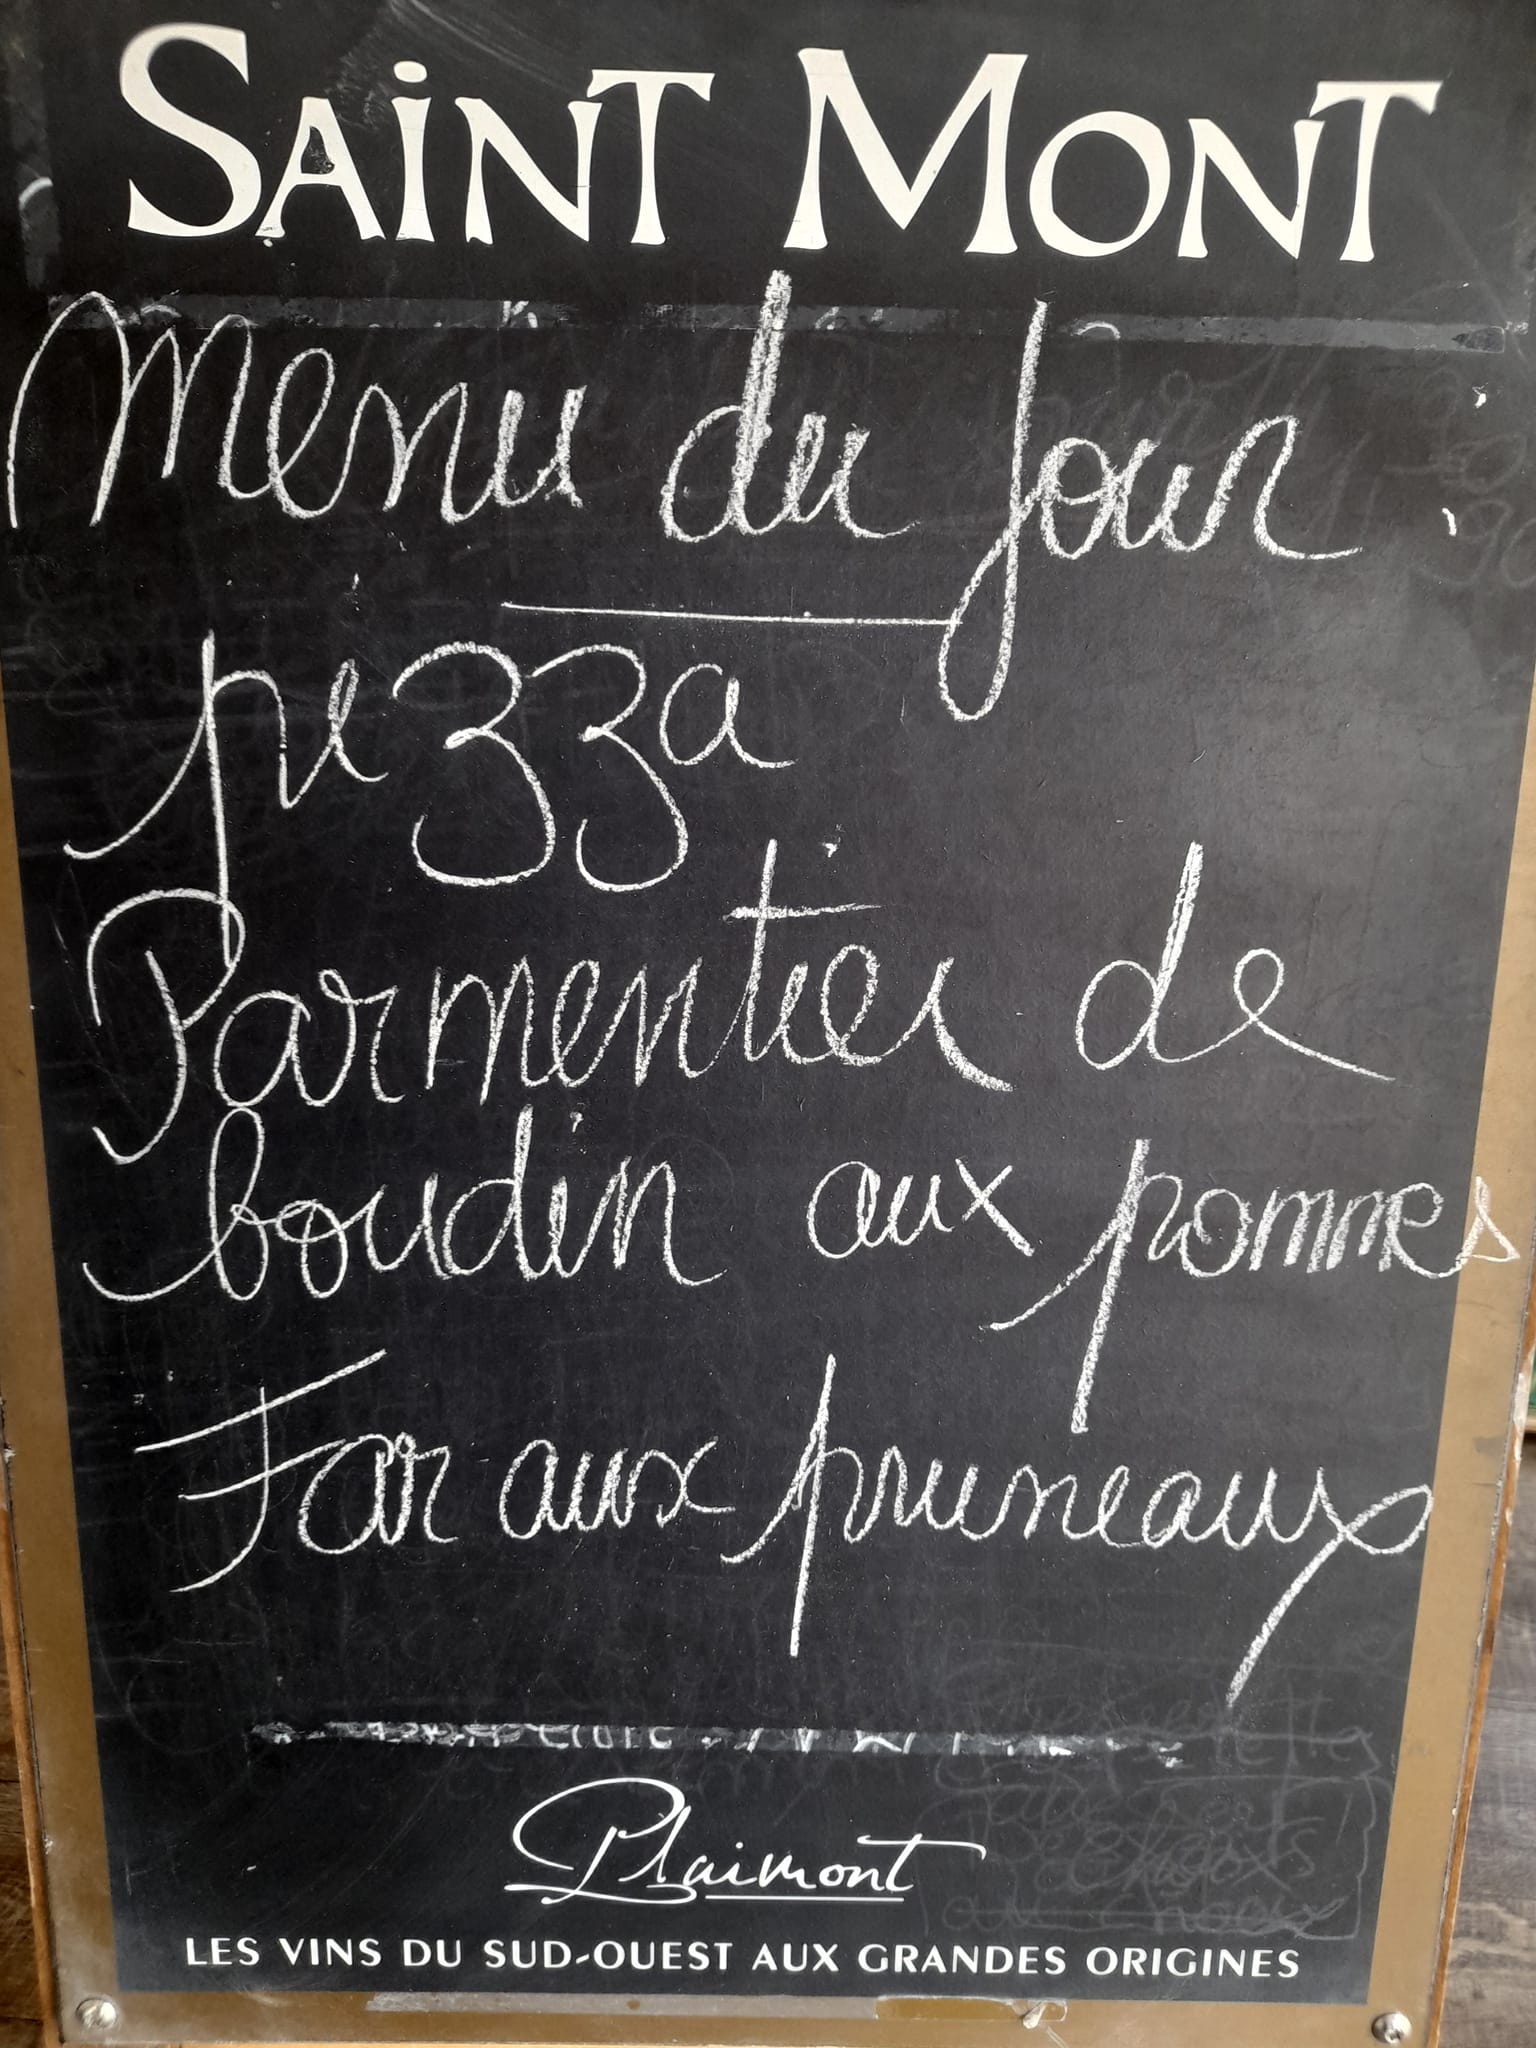 SAINT MONT
Menu du Jour :
pizza
Parmentier de
boudin aux pommes
Far aux pruneaux
Plaimont
LES VINS DU SUD-OUEST AUX GRANDES ORIGINES